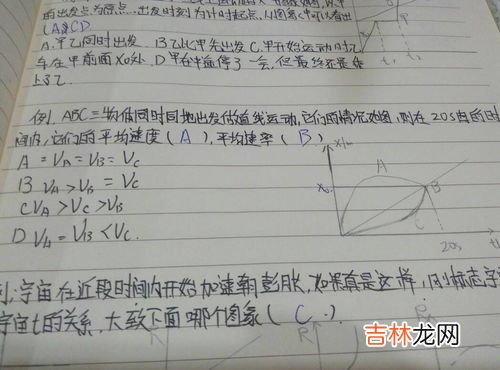 的出发点为原点,出发时刻为计时起点,从图象中可以看出
(A&CD
A.甲乙同时出发 B乙比甲先出发 C.甲开始运动时乙
车在甲前面X0处.D甲在中途停了一会,但最终还是追
上了乙.
P
t1
t
例.ABC三物体同时同地出发做直线运动,它们的情况如图,则在20s内的时
间内,它们的平均速度(A),平均速率(B)
A=VA=VB=VC
B VA>VB=VC
C VA>VC>VB
D VA=VB<VC.
x/m
A
X0
B
C
20s
t/
宇宙在近段时间内开始加速朝膨胀,如果真是这样,
宇宙t的关系,大致下面哪个图象(C.)
R
吉林龙网